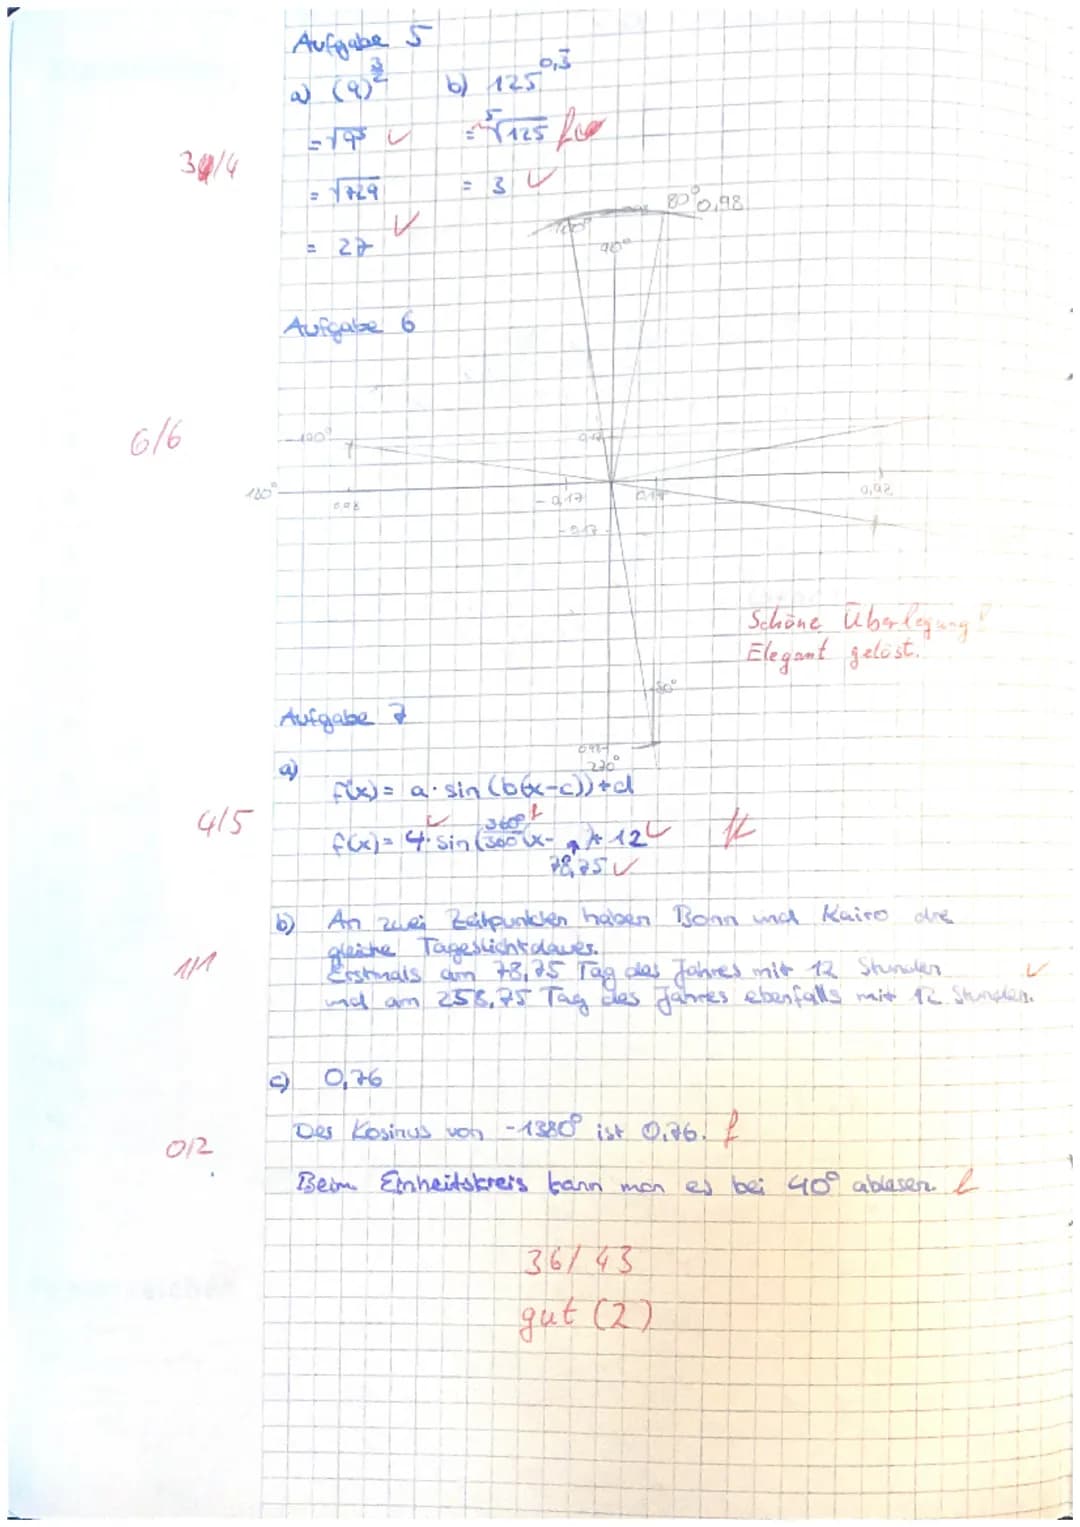 Aufgabe 5
a) (9)^(3/2)  b) 125^0,3̅
= √9³ ✓  = ⁵√125 f
3/4
= √729  = 3 ✓
= 27 ✓
80° 0,98
100°
90°
Aufgabe 6
6/6
0,17
180°
0,98
-0,17 0,17
0,98
-0,17
Schöne Überlegung!
Elegant gelöst.
-80°
Aufgabe 7
0,98
270°
a)
f(x) = a · sin (b(x-c)) + d
4/5
f(x) = 4 · sin (360°/360 (x- ) + 12 ✓
78,75 ✓
b) An zwei Zeitpunkten haben Bonn und Kairo die
gleiche Tageslichtdauer.
1/1
Erstmals am 78,75 Tag des Jahres mit 12 Stunden ✓
und am 258,75 Tag des Jahres ebenfalls mit 12 Stunden.
c) 0,76
Der Kosinus von -1380° ist 0,76. f
0/2
Beim Einheitskreis kann man es bei 40° ablesen. f
36/43
gut (2)